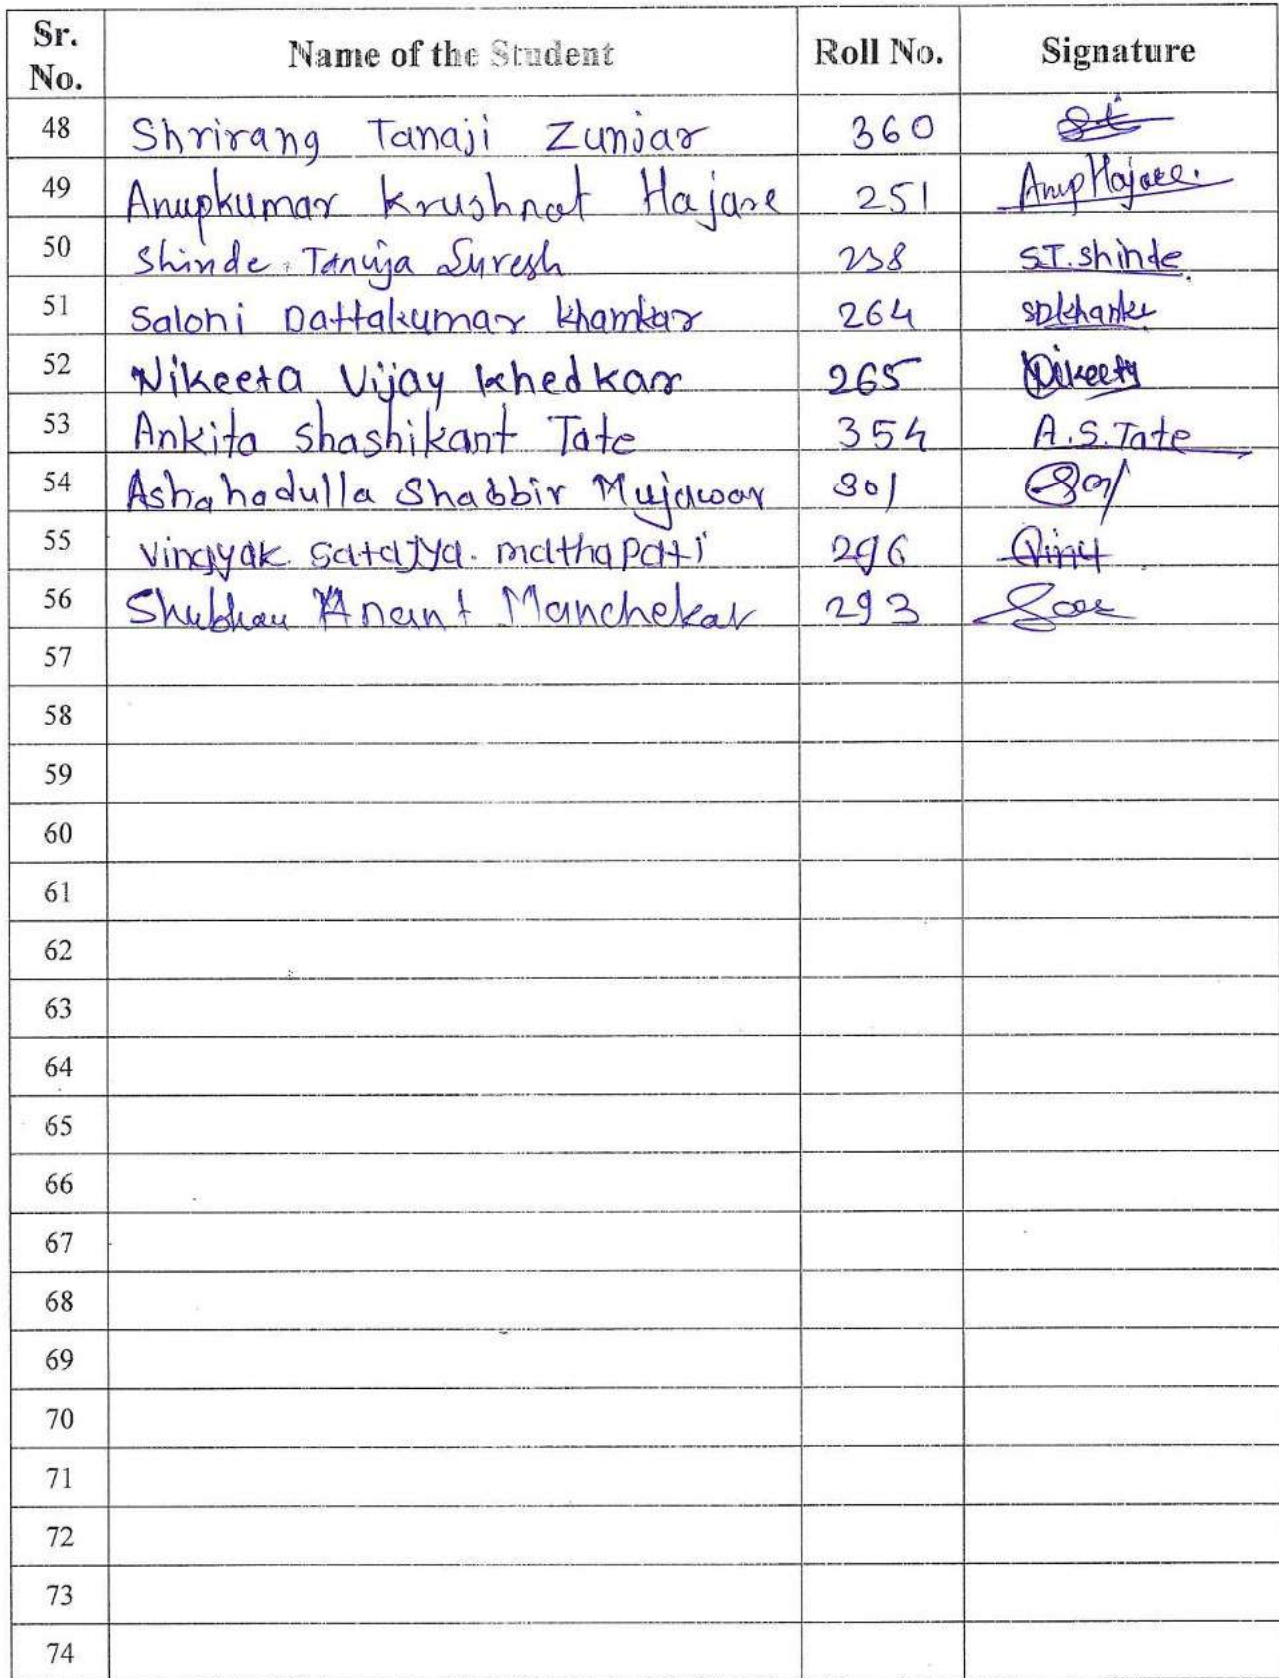 Sr. No. Name of the Student Roll No. Signature
48 Shrirang Tanaji Zunjar 360
49 Anupkumar Krushnat Hajare 251 Anup Hajare.
50 Shinde Tanuja Suresh 238 S.T. Shinde
51 Saloni Dattakumar Khamkar 264
52 Nikeeta Vijay Khedkar 265 Nikeeta
53 Ankita Shashikant Tate 354 A.S. Tate
54 Ashahadulla Shabbir Mujawar 301
55 Vinayak mathapati 296
56 Anant Manchekar 293
57
58
59
60
61
62
63
64
65
66
67
68
69
70
71
72
73
74